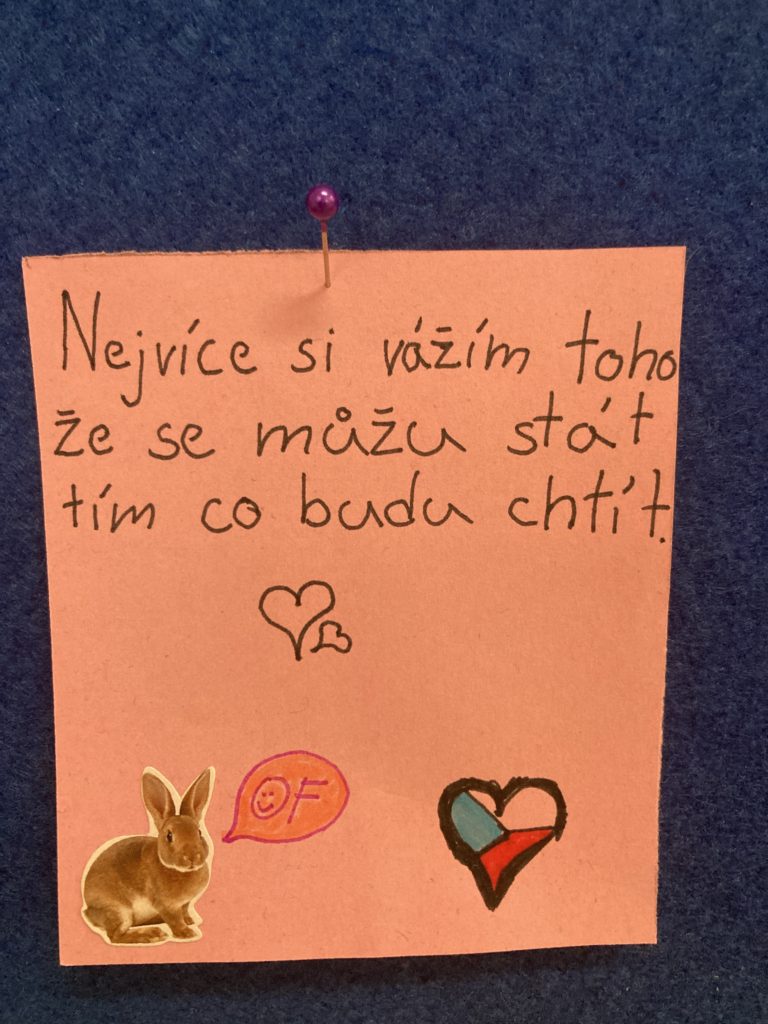 Nejvíce si vážím toho
že se můžu stát
tím co budu chtít.
OF